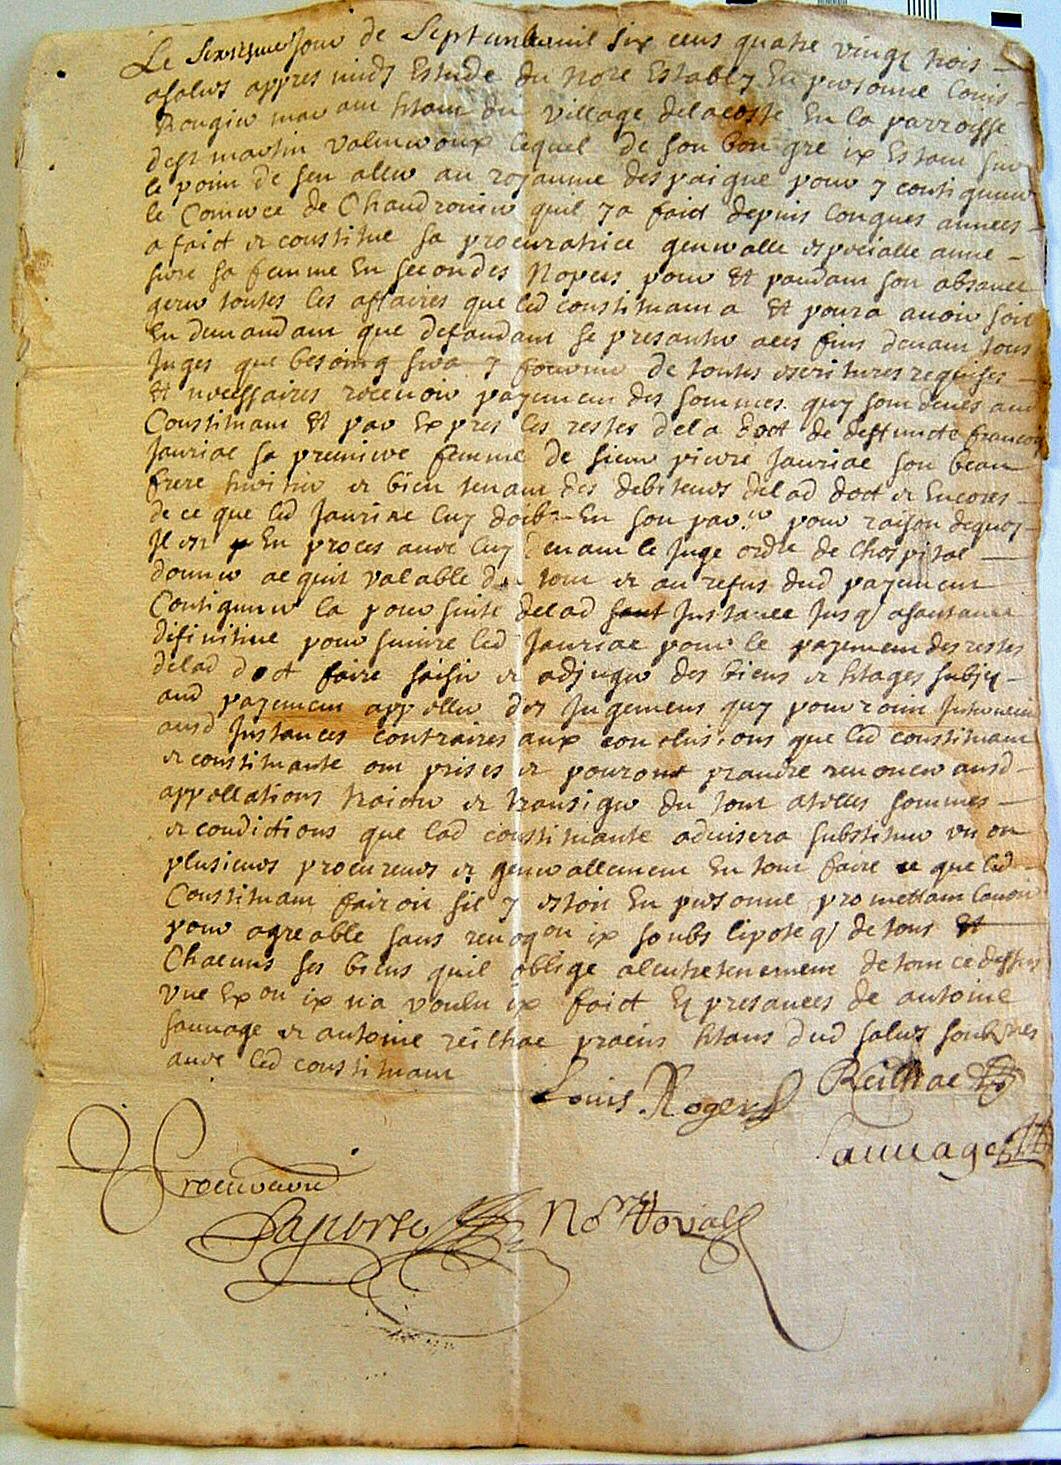 Le sixiesme jour de Septambre mil six cens quatre vingt trois
a salers appres midy Estude du no.re Estably En personne Louis
Rougier mar.ant h.tant du village delacoste En la parroisse
de s.t martin valmeroux lequel de son bon gre ix Estant sur
le point de sen aller au royaume despaigne pour y contiguuer
le Comerce de Chaudronier quil y a faict depuis longues annees
a faict et constitue sa procuratrice generalle especialle anne
sa femme En secondes Nopces pour Et pandant son absance
gerer toutes les affaires que led constituant a Et poura avoir soit
En demandant que defandant se presanter aces fins devant tous
Juges que besoing sera y fournir de toutes escritures requises
Et necessaires recevoir payement des sommes quy sont deues aud
Constituant Et par Expres les restes dela dot de deffuncte francoise
Jauriac sa premiere femme de sieur pierre Jauriac son beau
frere heritier et bien tenant des debiteurs delad dot et Encores
de ce que led Jauriac luy doibt En son par.er pour raison dequoy
Il est En proces avec luy devant le Juge ord.re de lhospital
donner acquit valable du tout et au refus dud payement
Contiguuer la poursuite delad Instance Jusq asantance
difinitive poursuivre led Jauriac pour le payement des restes
delad dot faire saisir et adjuger des biens et h.tages subjects
aud payement appeller des Jugemens quy pourroint Intervenir
ausd Instances contraires aux conclusions que led constituant
et constituante ont prises et pouront prandre renoncer ausd
appellations traicter et transiger du tout atelles sommes
et condictions que lad constituante advisera substituer un ou
plusieurs procureurs et generallement En tout faire ce que led
Constituant fairoit sil y estoit En personne promettant lavoir
pour agreable sans revoq.on ix soubs lipoteq de tous Et
Chacuns ses biens quil oblige alentretenement de tout ce dessus
une Ex.on ix n'a voulu ix faict Es presances de antoine
sauvage et antoine reilhac praciens h.tans dud salers soub.nes
avec led constituant
Louis Rogier Reilhac
Sauvage
Procureur
Laporte No.re Royal